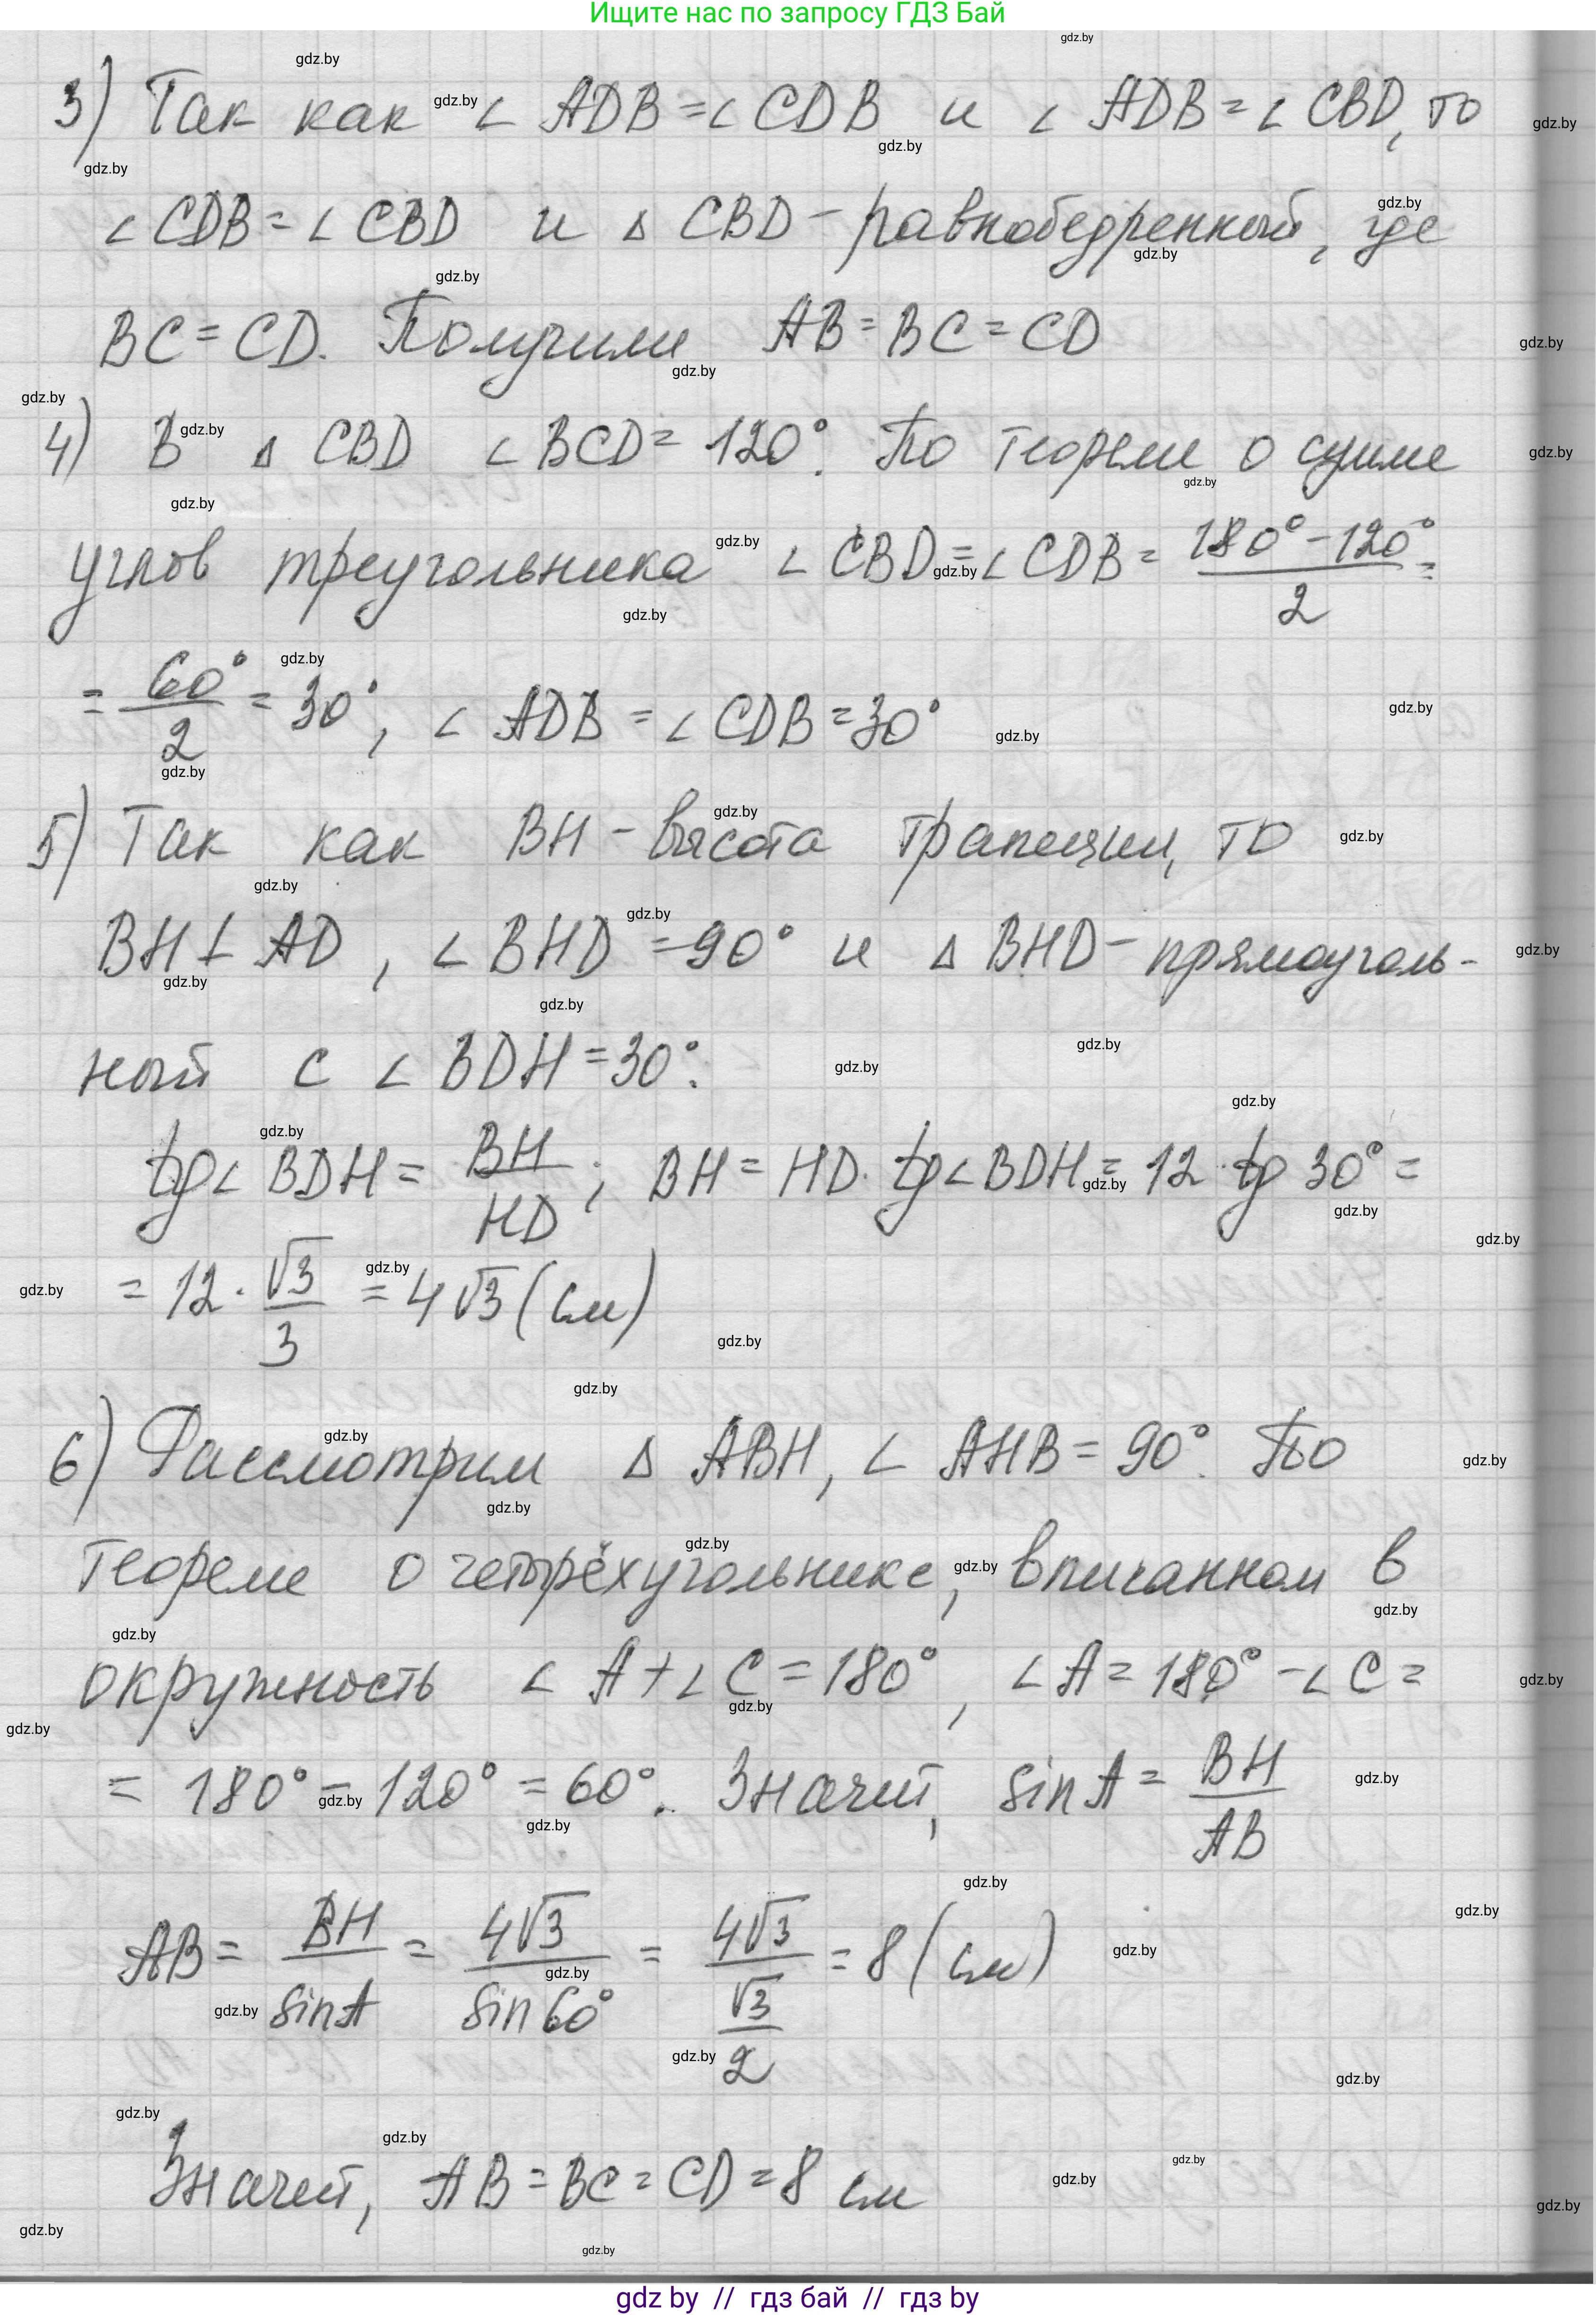 Ищите нас по запросу ГДЗ Бай
3) Так как ∠ ADB = ∠ CDB и ∠ ADB = ∠ CBD, то
∠ CDB = ∠ CBD и Δ CBD - равнобедренный, где
BC = CD. Получили AB = BC = CD
4) В Δ CBD ∠ BCD = 120°. По теореме о сумме
углов треугольника ∠ CBD = ∠ CDB = (180° - 120°)/2 =
= 60°/2 = 30°, ∠ ADB = ∠ CDB = 30°
5) Так как BH - высота трапеции, то
BH ⊥ AD, ∠ BHD = 90° и Δ BHD - прямоуголь-
ный с ∠ BDH = 30°.
tg∠ BDH = BH/HD; BH = HD · tg∠BDH = 12 · tg 30° =
= 12 · √3/3 = 4√3 (см)
6) Рассмотрим Δ ABH, ∠ AHB = 90°. По
теореме о четырёхугольнике, вписанном в
окружность ∠ A + ∠ C = 180°, ∠ A = 180° - ∠ C =
= 180° - 120° = 60°. Значит, sin A = BH/AB
AB = BH/sin A = 4√3/sin 60° = 4√3/(√3/2) = 8 (см)
Значит, AB = BC = CD = 8 см
gdz by // гдз бай // гдз by